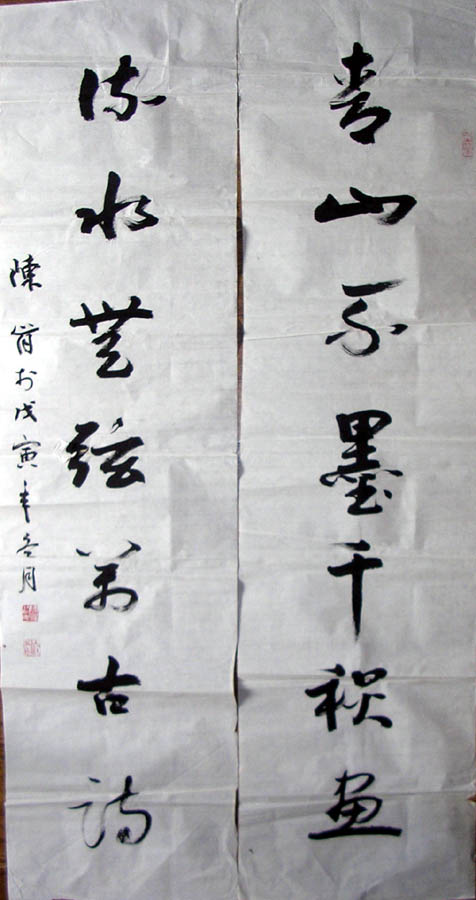 青山不墨千画
流水無弦萬古詩
陳於戊寅年冬月